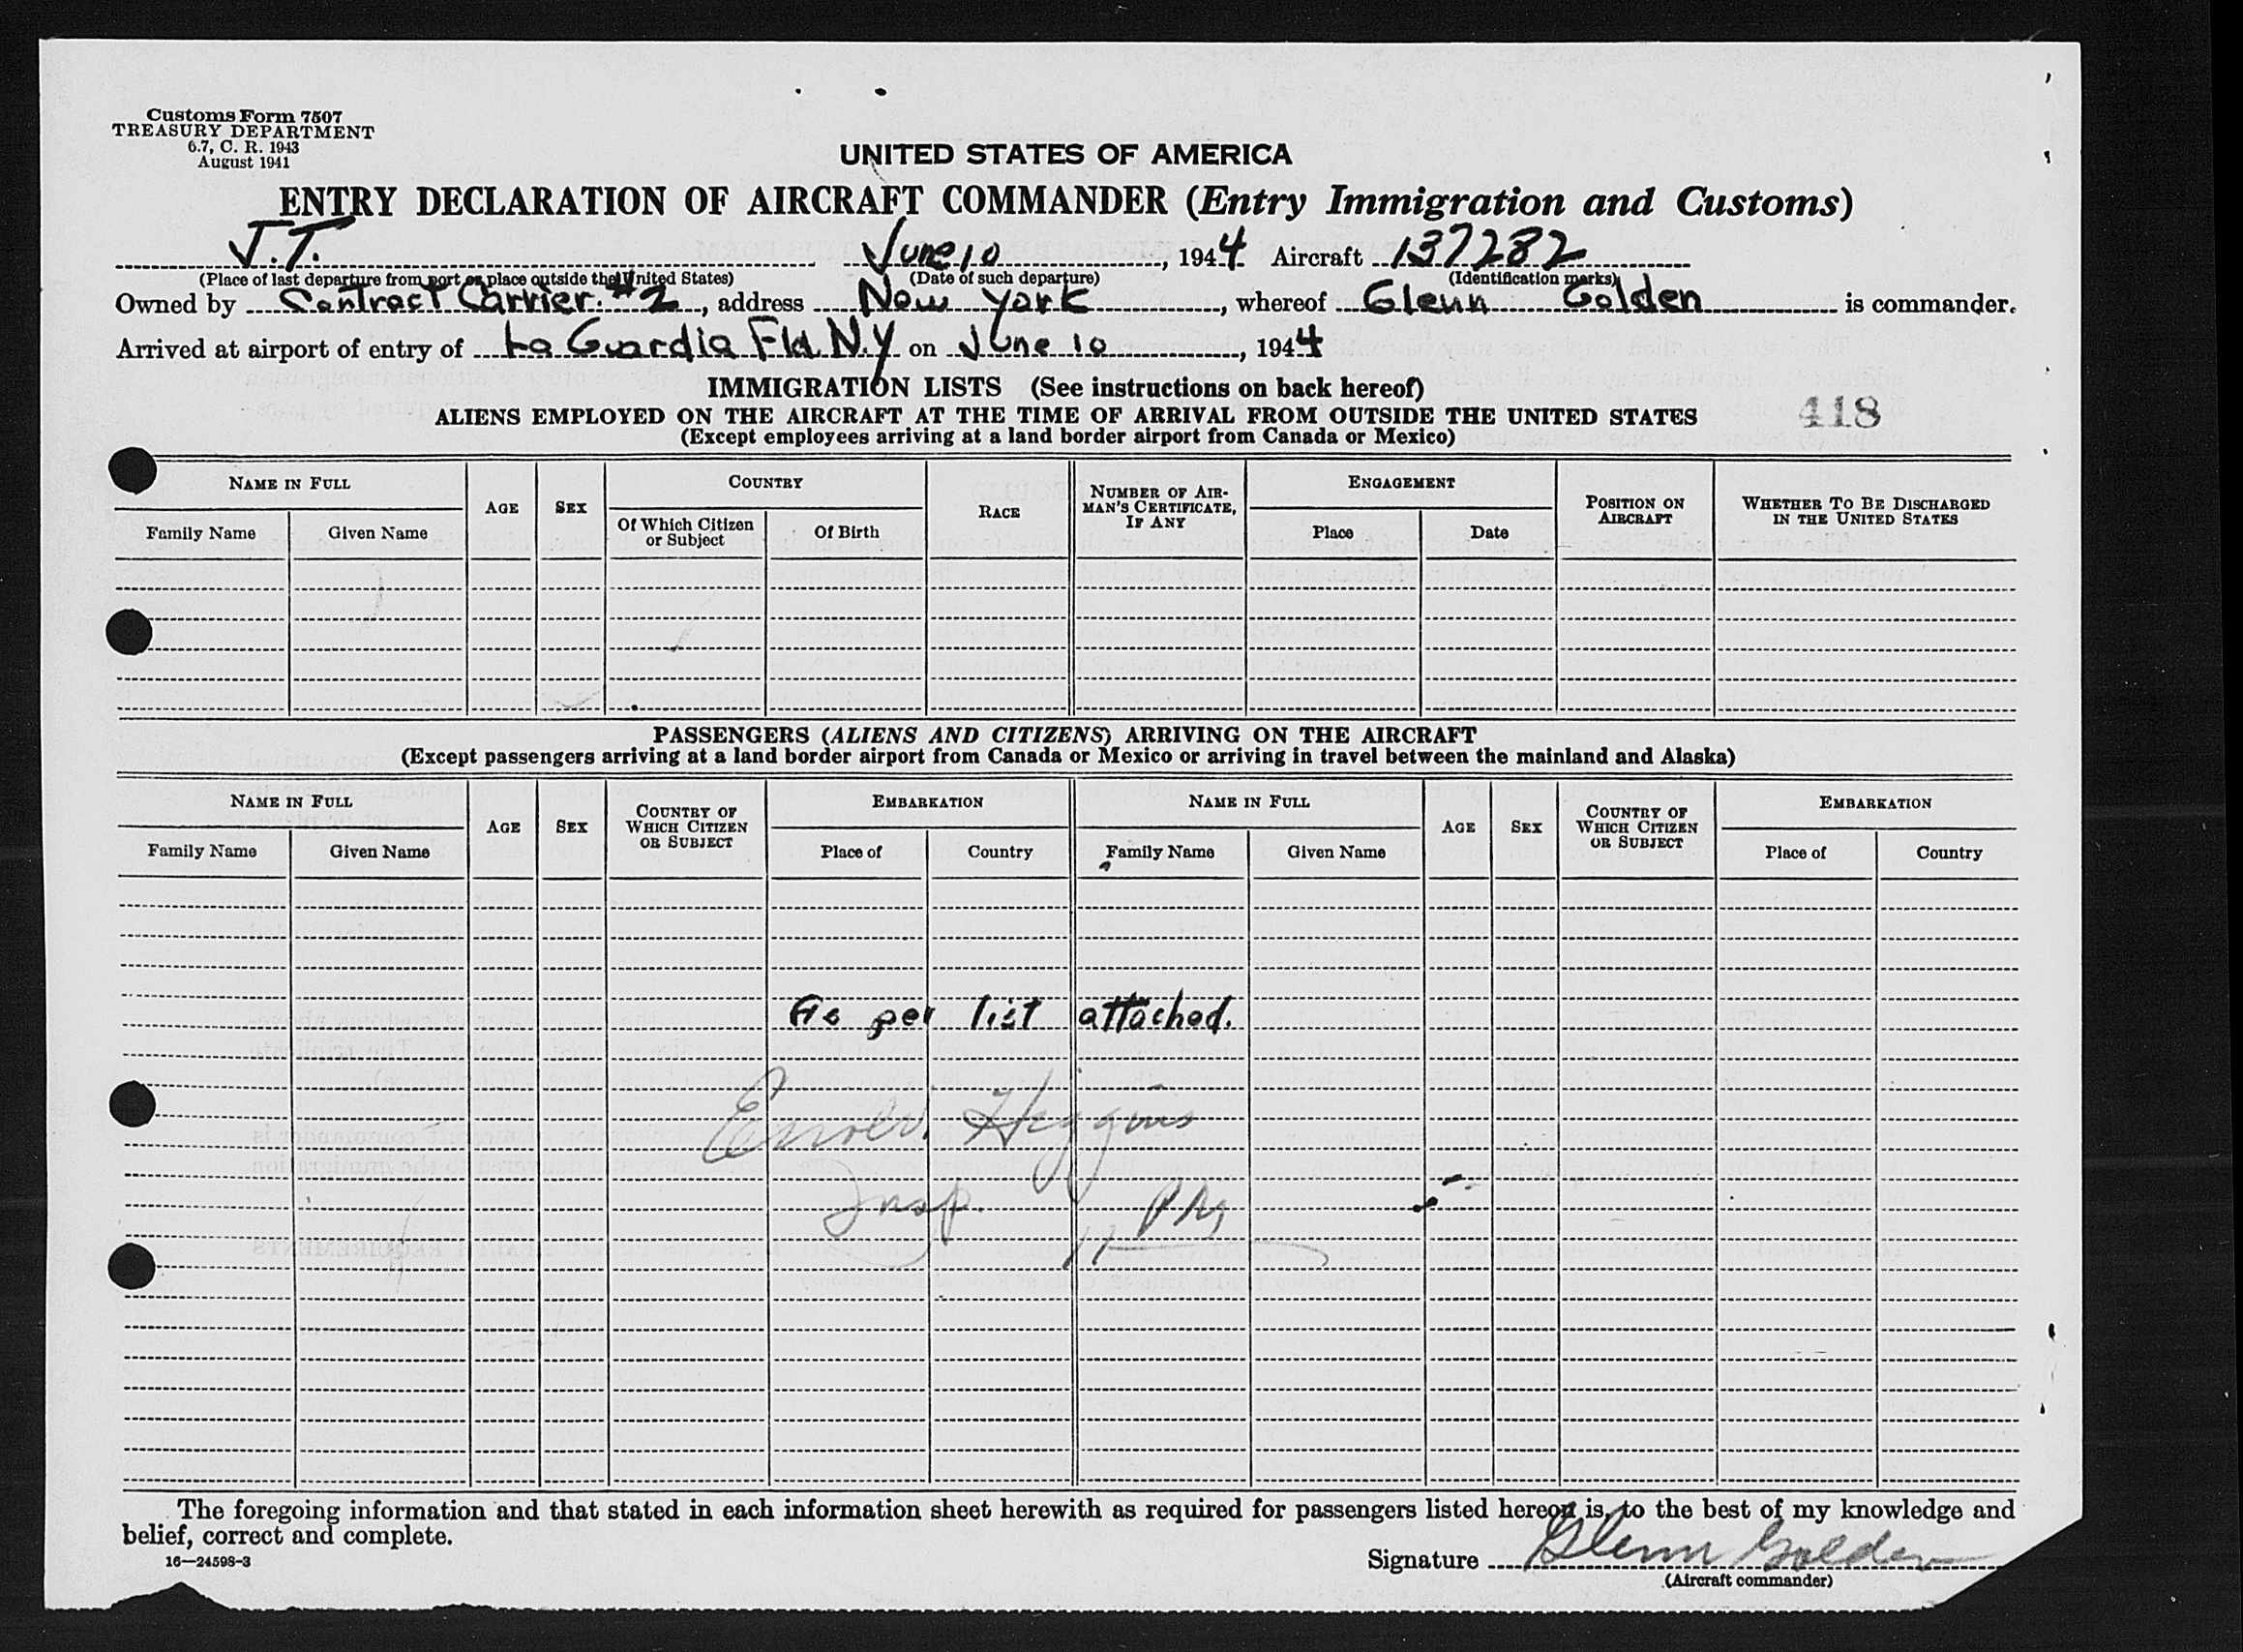 Customs Form 7507
TREASURY DEPARTMENT
6.7, C. R. 1943
August 1941
UNITED STATES OF AMERICA
ENTRY DECLARATION OF AIRCRAFT COMMANDER (Entry Immigration and Customs)
J.T. June 10, 1944 Aircraft 137282
(Place of last departure from port or place outside the United States) (Date of such departure) (Identification marks)
Owned by Contract Carrier #2, address New York, whereof Glenn Golden is commander.
Arrived at airport of entry of La Guardia Fld. N.Y on June 10, 1944
IMMIGRATION LISTS (See instructions on back hereof)
ALIENS EMPLOYED ON THE AIRCRAFT AT THE TIME OF ARRIVAL FROM OUTSIDE THE UNITED STATES 418
(Except employees arriving at a land border airport from Canada or Mexico)
NAME IN FULL AGE SEX COUNTRY RACE NUMBER OF AIRMAN'S CERTIFICATE, IF ANY ENGAGEMENT POSITION ON AIRCRAFT WHETHER TO BE DISCHARGED IN THE UNITED STATES
Family Name Given Name Of Which Citizen or Subject Of Birth Place Date
PASSENGERS (ALIENS AND CITIZENS) ARRIVING ON THE AIRCRAFT
(Except passengers arriving at a land border airport from Canada or Mexico or arriving in travel between the mainland and Alaska)
NAME IN FULL AGE SEX COUNTRY OF WHICH CITIZEN OR SUBJECT EMBARKATION NAME IN FULL AGE SEX COUNTRY OF WHICH CITIZEN OR SUBJECT EMBARKATION
Family Name Given Name Place of Country Family Name Given Name Place of Country
As per list attached.
Higgins
Insp.
The foregoing information and that stated in each information sheet herewith as required for passengers listed hereon is, to the best of my knowledge and
belief, correct and complete.
16—24598-3
Signature Glenn Golden
(Aircraft commander)